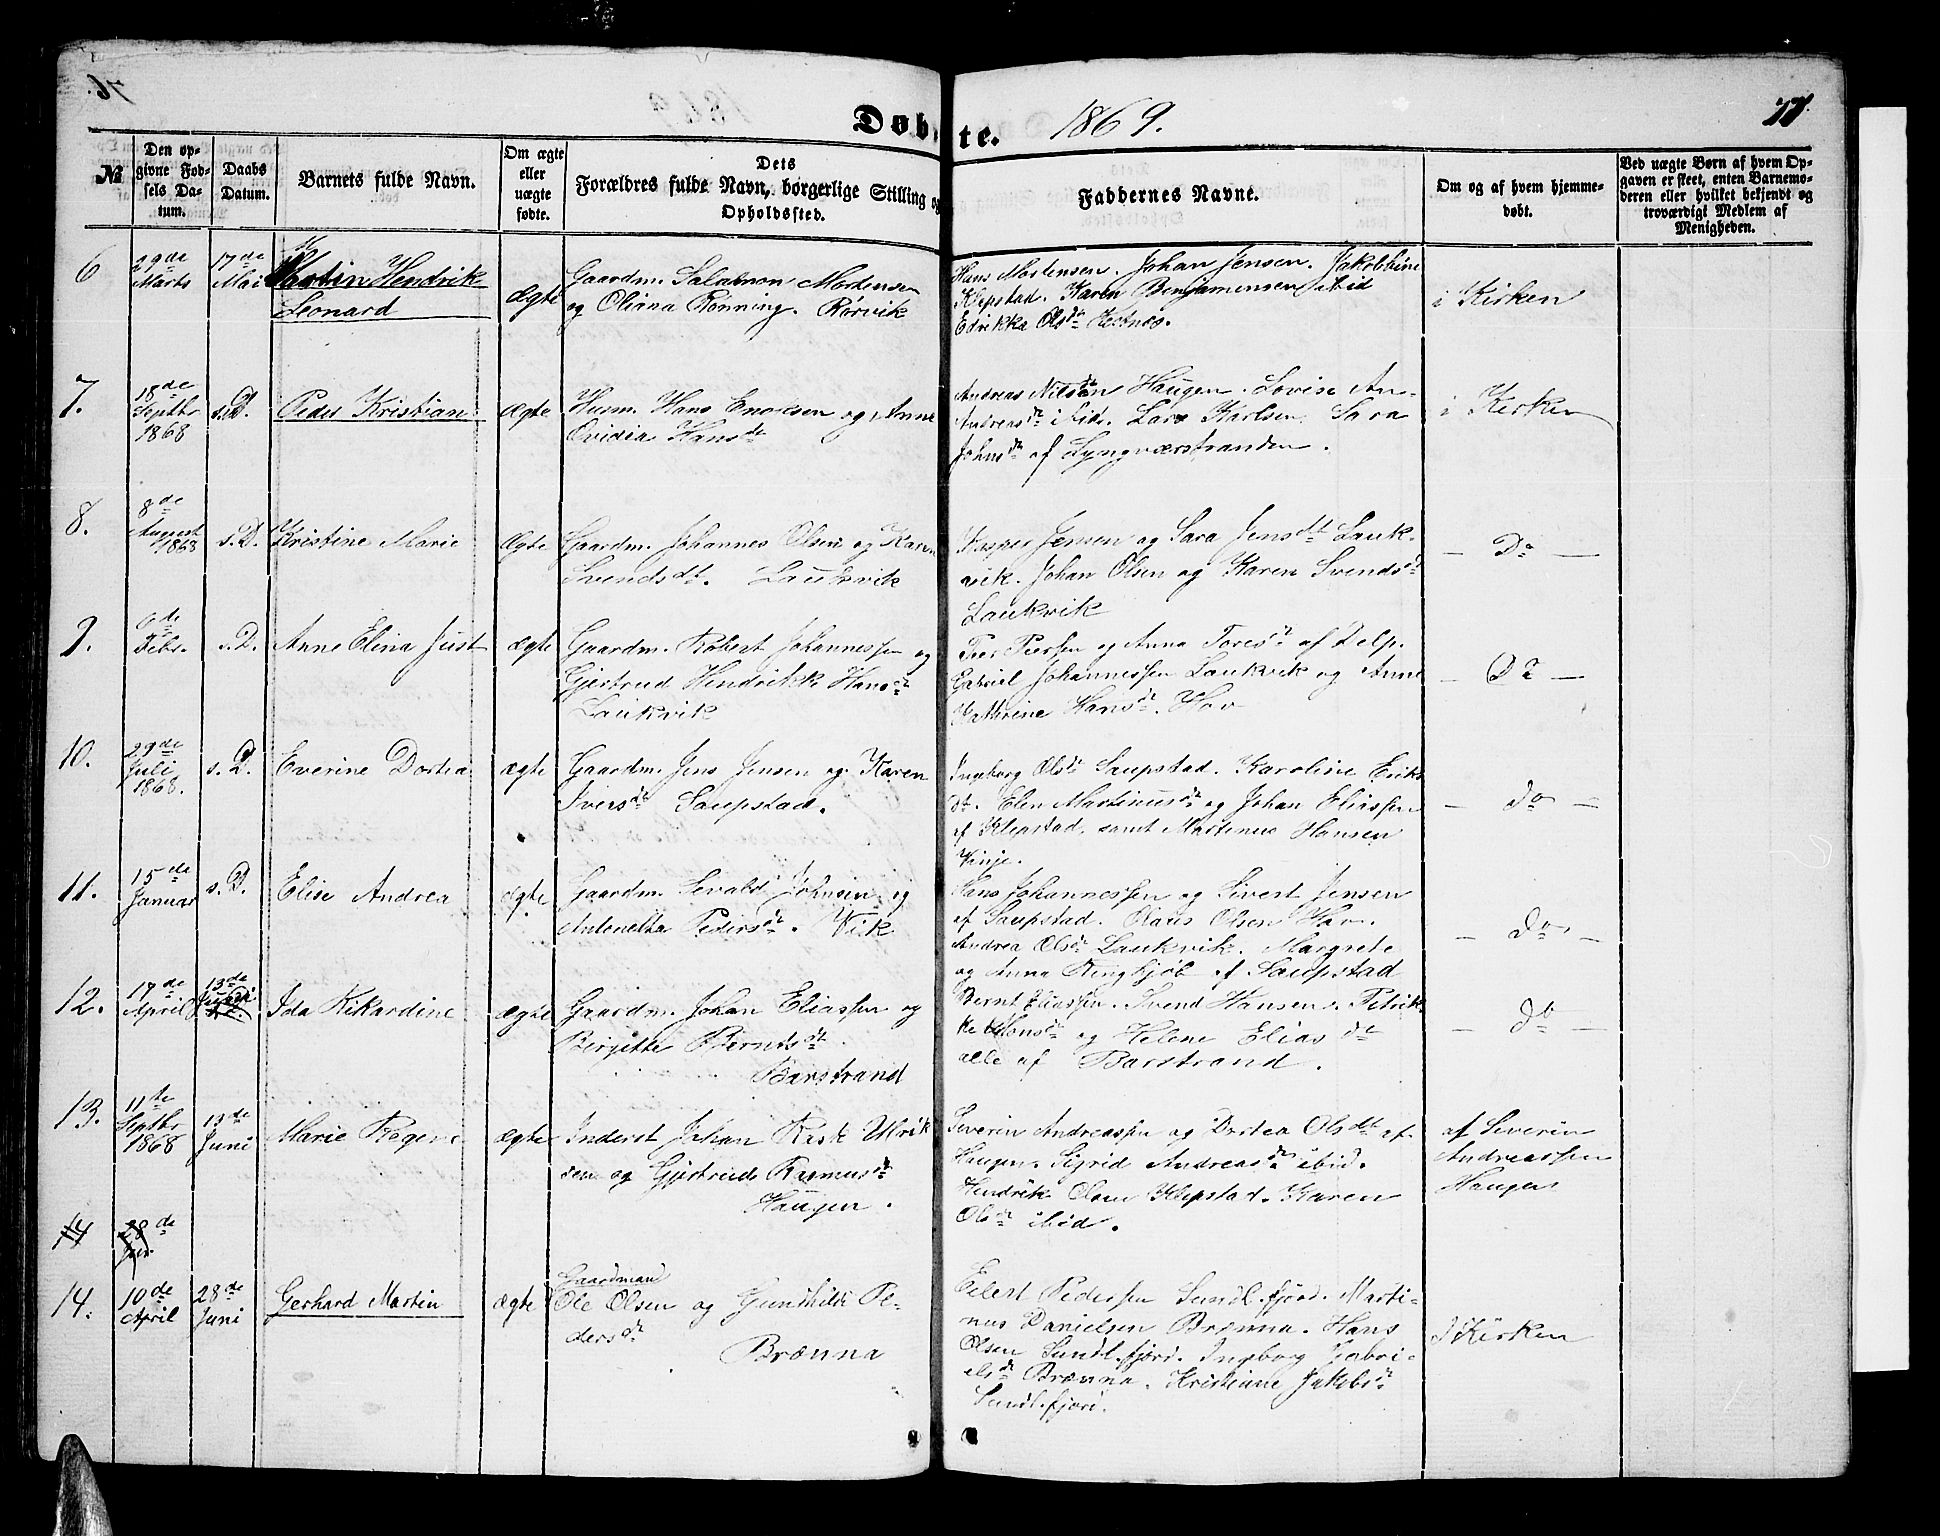 76.
Døbte. 1869.
77.
№
Den opgivne Fødsels Datum.
Daabs Datum.
Barnets fulde Navn.
Om ægte eller uægte fødte.
Dets Forældres fulde Navn, borgerlige Stilling og Opholdssted.
Faddernes Navne.
Om og af hvem hjemmedøbt.
Ved uægte Børn af hvem Opgaven er skeet, enten Barnemoderen eller hvilket bekjendt og troværdigt Medlem af Menigheden.
6
29de Marts
17de Mai
Martin Hendrik
Leonard
Ægte
Gaardm. Salamon Mortensen
og Oliana Rønning. Rørvik
Hans Mortensen. Johan Jensen. Jakobbine
Klepstad. Karen Benjaminsen ibid
Edvikka Olsdt Festnes.
i Kirken
7.
18de Septbr 1868
s.D.
Peder Kristian
Ægte
Husm. Hans Enoksen og Anne
Ovidia Hansdt
Andreas Nilsen Haugen. Lovise An-
Andreasdt ibid. Lars Karlsen. Sara
Johnsdt af Lyngværstranden.
i Kirken
8.
8de August 1868
s.D.
Kristine Marie
Ægte
Gaardm. Johannes Olsen og Karen
Svendsdt. Laukvik
Kasper Jensen og Sara Jensdt Lauk-
vik. Johan Olsen og Karen Svendsdt
Laukvik
— Do —
9.
6de Febr.
s.D.
Anne Elina Just
ægte
Gaardm. Robert Johannessen og
Gjertrud Hendrikk Hansdt
Laukvik
Peer Peersen og Anna Toresdt af Delp.
Gabriel Johannessen Laukvik og Anne
Kathrine Hansdt. Hov
— Do —
10.
29de Juli 1868.
s.D.
Everine Dortea
ægte
Gaardm. Jens Jensen og Karen
Iversdt Saupstad.
Ingeborg Olsdt Saupstad. Karoline Eriks
dt. Elen Martinusdt og Johan Eliassen
af Klepstad, samt Martinus Hansen
Vinje.
— do —
11.
15de Januar
s.D.
Elise Andrea
ægte
Gaardm. Sevald Johnsen og
Antonette Pedersdt. Vik
Hans Johannessen og Sivert Jensen
af Saupstad. Klaus Olsen Hov.
Andrea Olsdt Laukvik. Margrete
og Anna Ringkjøb af Saupstad
— do —
12.
17de April
13de Juni
Ida Rikardine
ægte
Gaardm. Johan Eliassen og
Birgitte Berntsdt.
Barstrand
Bernt Eliassen. Svend Hansen. Petrik-
ke Monsdt og Helene Elias dt
alle af Barstrand
— do —
13.
11te Septbr 1868
13de Juni
Marie Regine
ægte
Inderst Johan Kask Ulrik
sen og Gjertrude Rasmusdt
Haugen.
Severin Andreassen og Dortea Olsdt af
Haugen. Sigrid Andreasdt ibid.
Hendrik Olsen Klepstad. Karen
Olsdt ibid.
af Severin
Andreassen
Haugen
14
28de
Jun
14.
10de April
28de Juni
Gerhard Martin
ægte
Gaardmand
Ole Olsen og Gunhilde Pe-
dersdt
Brænna
Eilert Pedersen Sundl.fjord. Marti-
nus Danielsen Brænna. Hans
Olsen Sundl.fjord. Ingeborg Gabri-
elsdt Brænna. Kristiane Jakobsdt
Sundl.fjord.
I Kirken